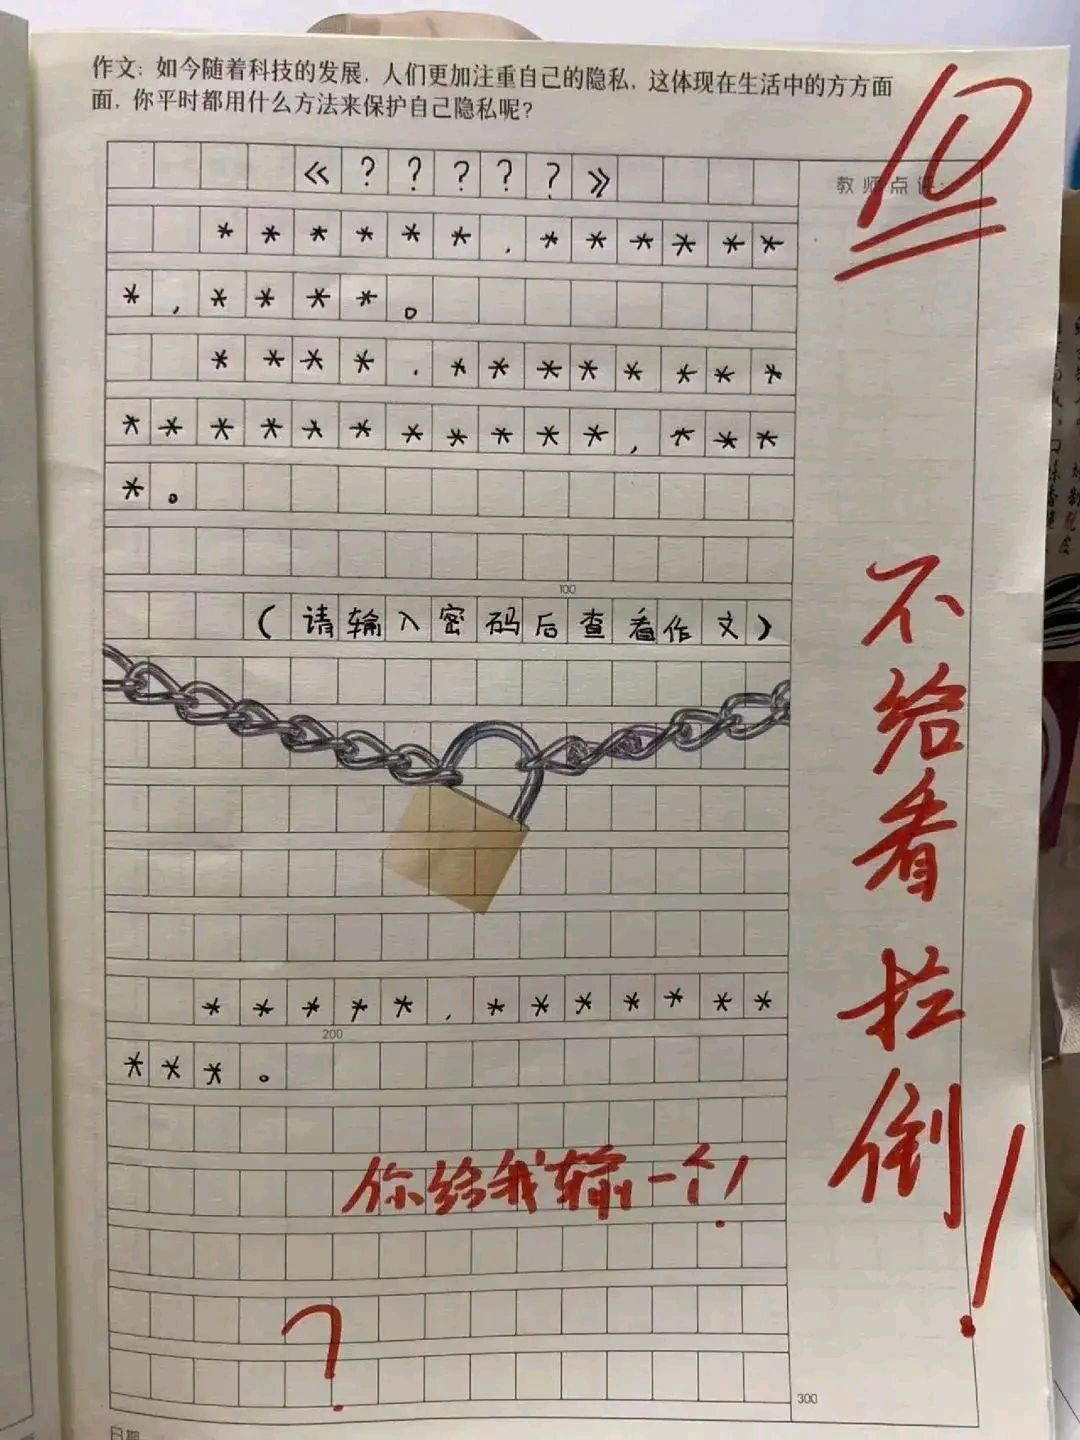 作文：如今随着科技的发展，人们更加注重自己的隐私，这体现在生活中的方方面
面，你平时都用什么方法来保护自己隐私呢？
《？？？？？》
教师点评：
10
******，******
*，****。
****，********
***********，***
*。
100
（请输入密码后查看作文）
*****，*******
200
***。
你给我输一个！
？
300
不给看拉倒！
日期